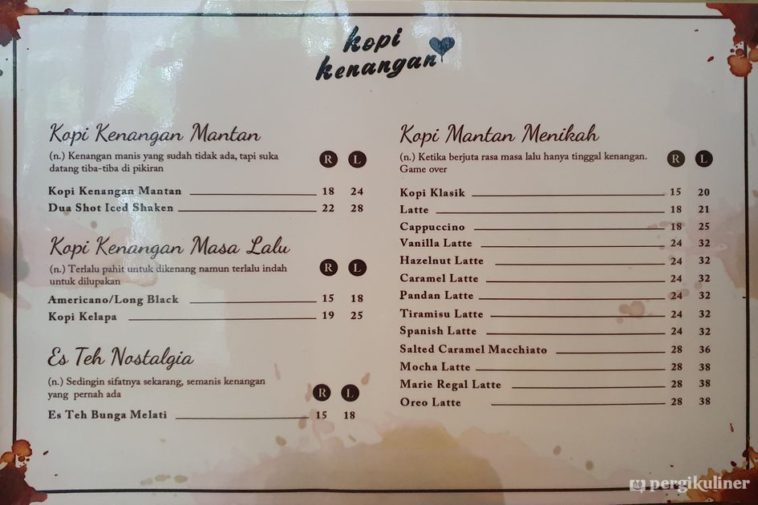 kopi
kenangan
Kopi Kenangan Mantan
(n.) Kenangan manis yang sudah tidak ada, tapi suka R L
datang tiba-tiba di pikiran
Kopi Kenangan Mantan 18 24
Dua Shot Iced Shaken 22 28
Kopi Kenangan Masa Lalu
(n.) Terlalu pahit untuk dikenang namun terlalu indah R L
untuk dilupakan
Americano/Long Black 15 18
Kopi Kelapa 19 25
Es Teh Nostalgia
(n.) Sedingin sifatnya sekarang, semanis kenangan R L
yang pernah ada
Es Teh Bunga Melati 15 18
Kopi Mantan Menikah
(n.) Ketika berjuta rasa masa lalu hanya tinggal kenangan. R L
Game over
Kopi Klasik 15 20
Latte 18 21
Cappuccino 18 25
Vanilla Latte 24 32
Hazelnut Latte 24 32
Caramel Latte 24 32
Pandan Latte 24 32
Tiramisu Latte 24 32
Spanish Latte 24 32
Salted Caramel Macchiato 28 36
Mocha Latte 28 38
Marie Regal Latte 28 38
Oreo Latte 28 38
pergikuliner